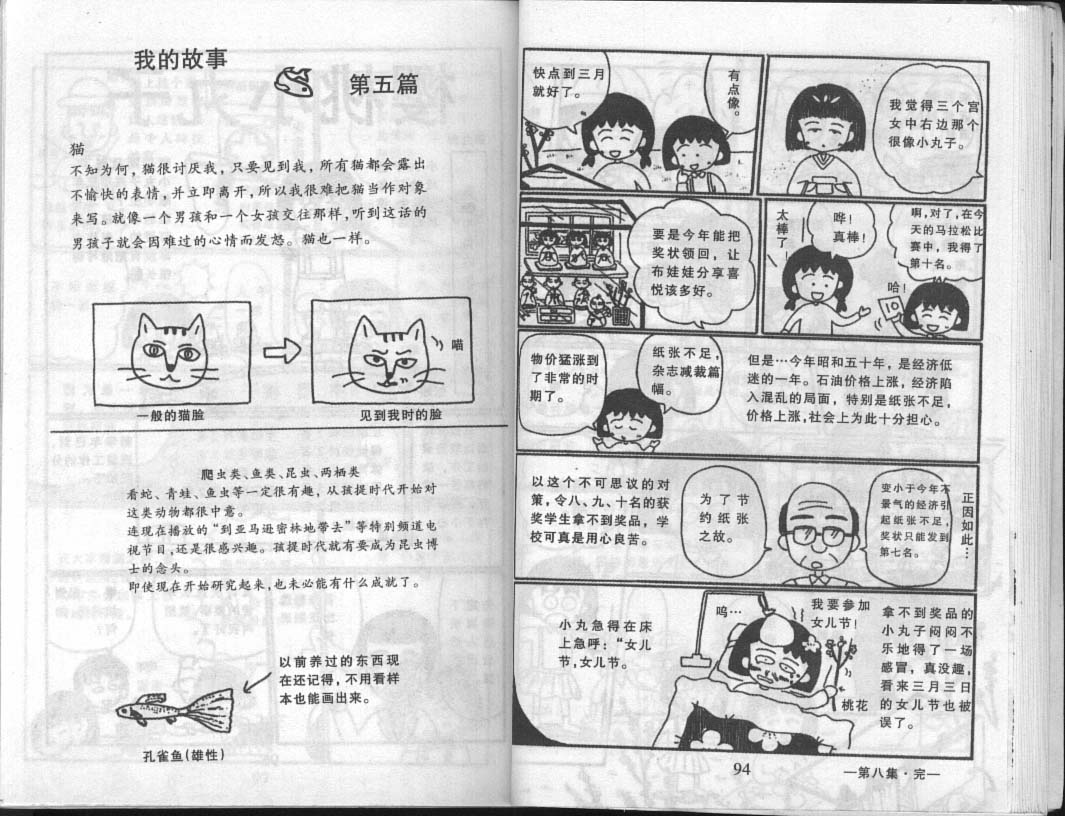 我的故事
第五篇
猫
不知为何，猫很讨厌我，只要见到我，所有猫都会露出
不愉快的表情，并立即离开，所以我很难把猫当作对象
来写。就像一个男孩和一个女孩交往那样，听到这话的
男孩子就会因难过的心情而发怒。猫也一样。
喵
一般的猫脸
见到我时的脸
爬虫类、鱼类、昆虫、两栖类
看蛇、青蛙、鱼虫等一定很有趣，从孩提时代开始对
这类动物都很中意。
连现在播放的“到亚马逊密林地带去”等特别频道电
视节目，还是很感兴趣。孩提时代就有要成为昆虫博
士的念头。
即使现在开始研究起来，也未必能有什么成就了。
以前养过的东西现
在还记得，不用看样
本也能画出来。
孔雀鱼(雄性)
快点到三月
就好了。
有
点
像。
我觉得三个宫
女中右边那个
很像小丸子。
要是今年能把
奖状领回，让
布娃娃分享喜
悦该多好。
太
棒
了
哗！
真棒！
啊，对了，在今
天的马拉松比
赛中，我得了
第十名。
哈！
物价猛涨到
了非常的时
期了。
纸张不足，
杂志减裁篇
幅。
但是…今年昭和五十年，是经济低
迷的一年。石油价格上涨，经济陷
入混乱的局面，特别是纸张不足，
价格上涨，社会上为此十分担心。
以这个不可思议的对
策，令八、九、十名的获
奖学生拿不到奖品，学
校可真是用心良苦。
为了节
约纸张
之故。
变小于今年不
景气的经济引
起纸张不足，
奖状只能发到
第七名。
正
因
如
此
…
小丸急得在床
上急呼：“女儿
节，女儿节。
呜…
我要参加
女儿节！
桃花
拿不到奖品的
小丸子闷闷不
乐地得了一场
感冒，真没趣，
看来三月三日
的女儿节也被
误了。
94
—第八集·完—